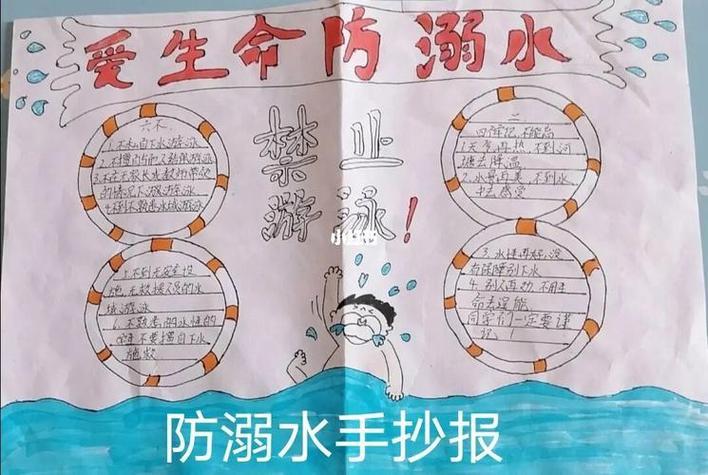 爱生命防溺水
禁止
游泳！
六不
1.不私自下水游泳
2.不擅自与他人结伴游泳
3.不在无家长或教师带领
的情况下游游泳
4.不到不熟悉水域游泳
5.不到无安全设
施、无救援人员的水
域游泳
6.不熟悉水性的
学生不要擅自下水
施救
二
四牢记、不能忘
1.天气再热，不到河
塘去降温
2.水景再美，不到水
中去感受
3.水性再好，没
有保障别下水
4.别人再劝，不用生
命去逞能
同学们一定要谨
记！
小红书
防溺水手抄报